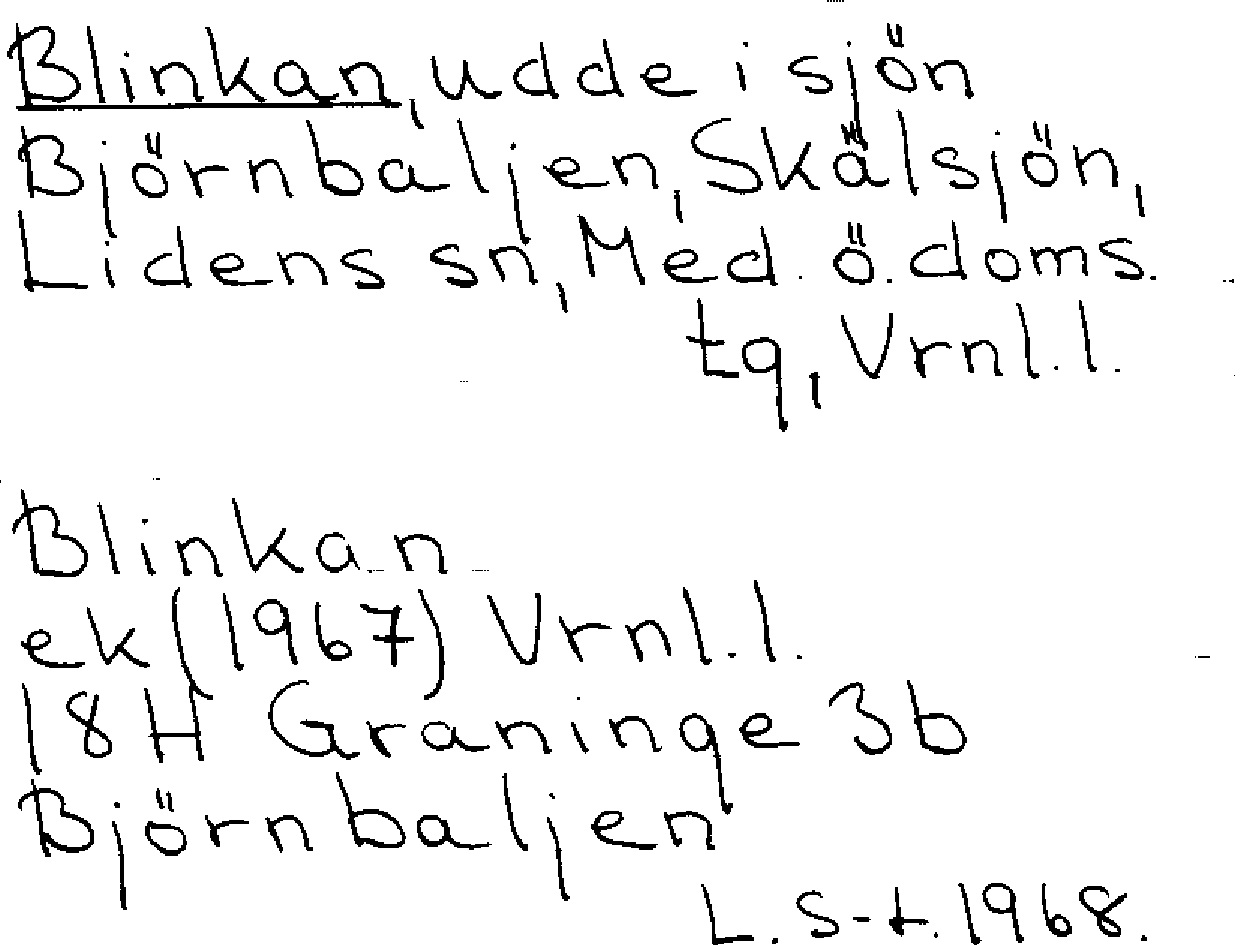 Blinkan, udde i sjön
Björnbaljen, Skälsjön,
Lidens sn, Med. ö. doms.
tg, Vrnl. l.
Blinkan
ek (1967) Vrnl. l.
18H Graninge 3b
Björnbaljen
L. S-t. 1968.